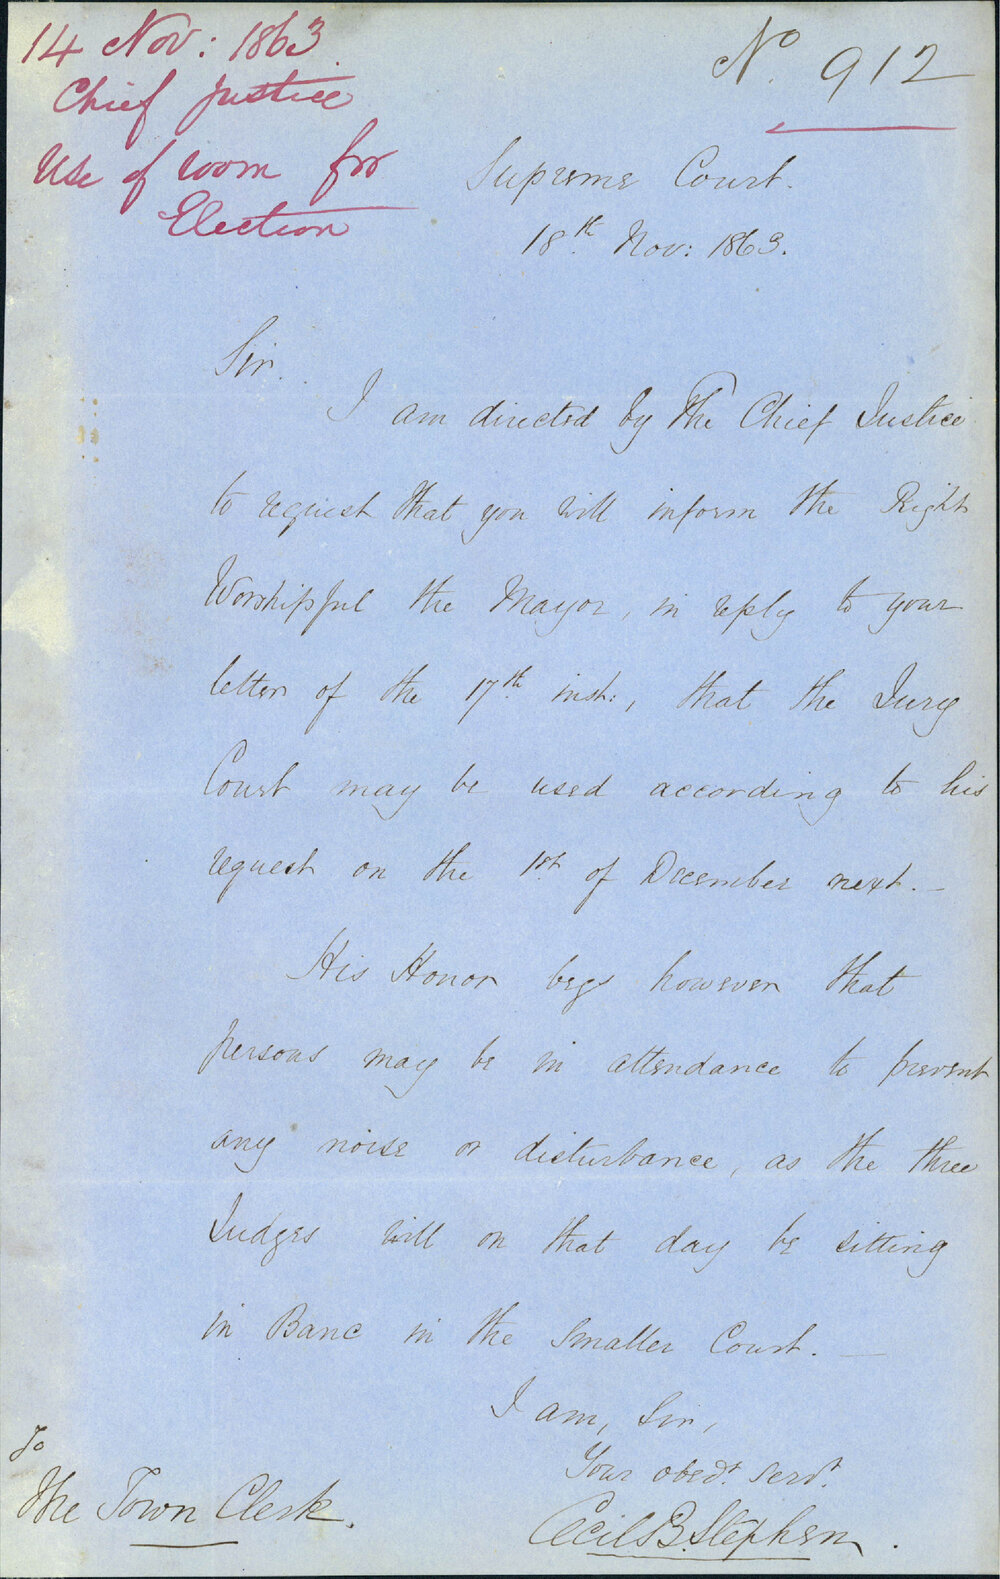 14 Nov: 1863
Chief Justice
Use of room for
Election
No. 912
Supreme Court.
18th Nov: 1863.
Sir.
I am directed by the Chief Justice
to request that you will inform the Right
Worshipful the Mayor, in reply to your
letter of the 17th inst:, that the Jury
Court may be used according to his
request on the 1st of December next.—
His Honor begs however that
persons may be in attendance to prevent
any noise or disturbance, as the three
Judges will on that day be sitting
in Banc in the smaller Court.—
I am, Sir,
Your obedt. servt.
Cecil B. Stephen.
To
The Town Clerk.